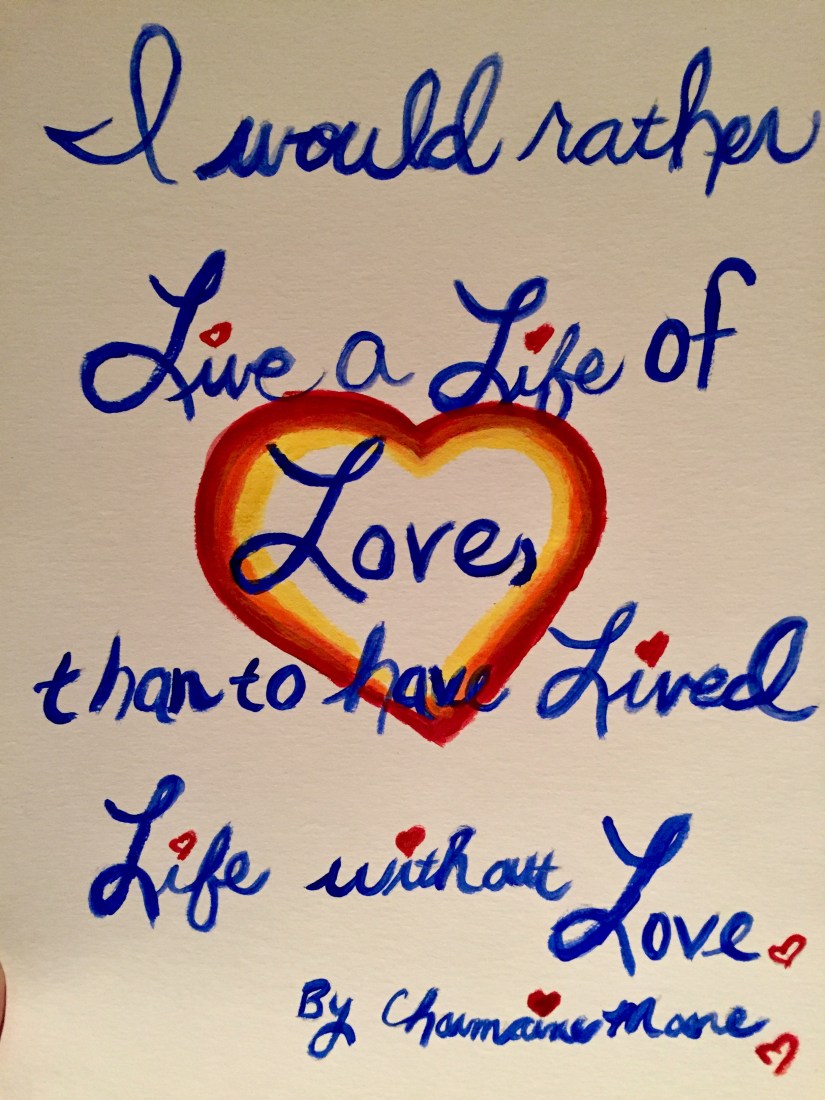 I would rather
Live a Life of
Love,
than to have Lived
Life without
Love
By Charmaine Moore